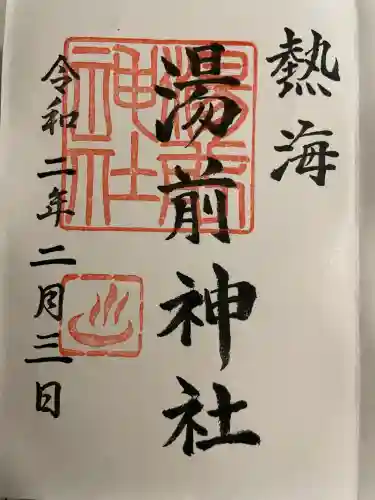 熱海
湯前神社
令和二年二月三日
湯前
神社